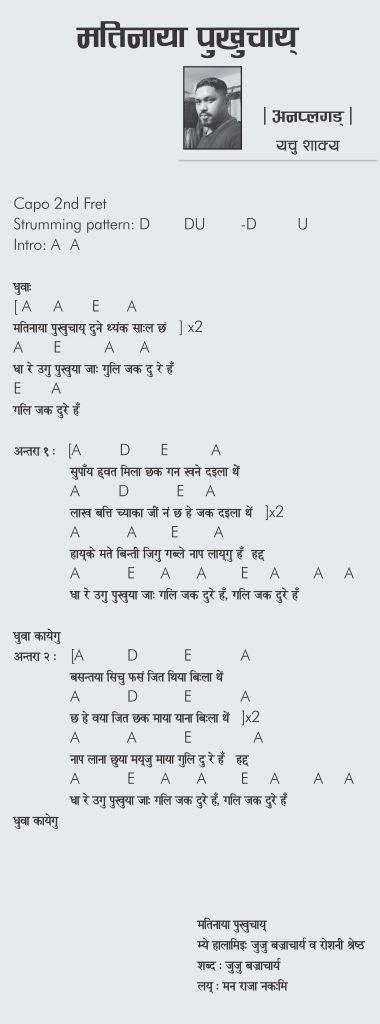 मतिनाया पुखुचाय्
| अनप्लगड् |
यचु शाक्य
Capo 2nd Fret
Strumming pattern: D DU -D U
Intro: A A
धुवाः
[ A A E A
मतिनाया पुखुचाय् दुने थ्यंक साःल छं ] x2
A E A A
धा रे उगु पुखुया जाः गुलि जक दु रे हँ
E A
गलि जक दुरे हँ
अन्तरा १ : [A D E A
सुपाँय ह्वत मिला छक गन स्वने दइला थें
A D E A
लाख बत्ति च्याका जीं नं छ हे जक दइला थें ]x2
A A E A
हाय्‌के मते बिन्ती जिगु गब्ले नाप लाय्‌गु हँ हद्द
A E A A E A A A
धा रे उगु पुखुया जाः गलि जक दुरे हँ, गलि जक दुरे हँ
धुवा कायेगु
अन्तरा २ : [A D E A
बसन्तया सिचु फसं जित थिया बिःला थें
A D E A
छ हे वया जित छक माया याना बिःला थें ]x2
A A E A
नाप लाना छुया मय्‌जु माया गुलि दु रे हँ हद्द
A E A A E A A A
धा रे उगु पुखुया जाः गलि जक दुरे हँ, गलि जक दुरे हँ
धुवा कायेगु
मतिनाया पुखुचाय्
म्ये हालामिइः जुजु बज्राचार्य व रोशनी श्रेष्ठ
शब्द : जुजु बज्राचार्य
लय् : मन राजा नकःमि